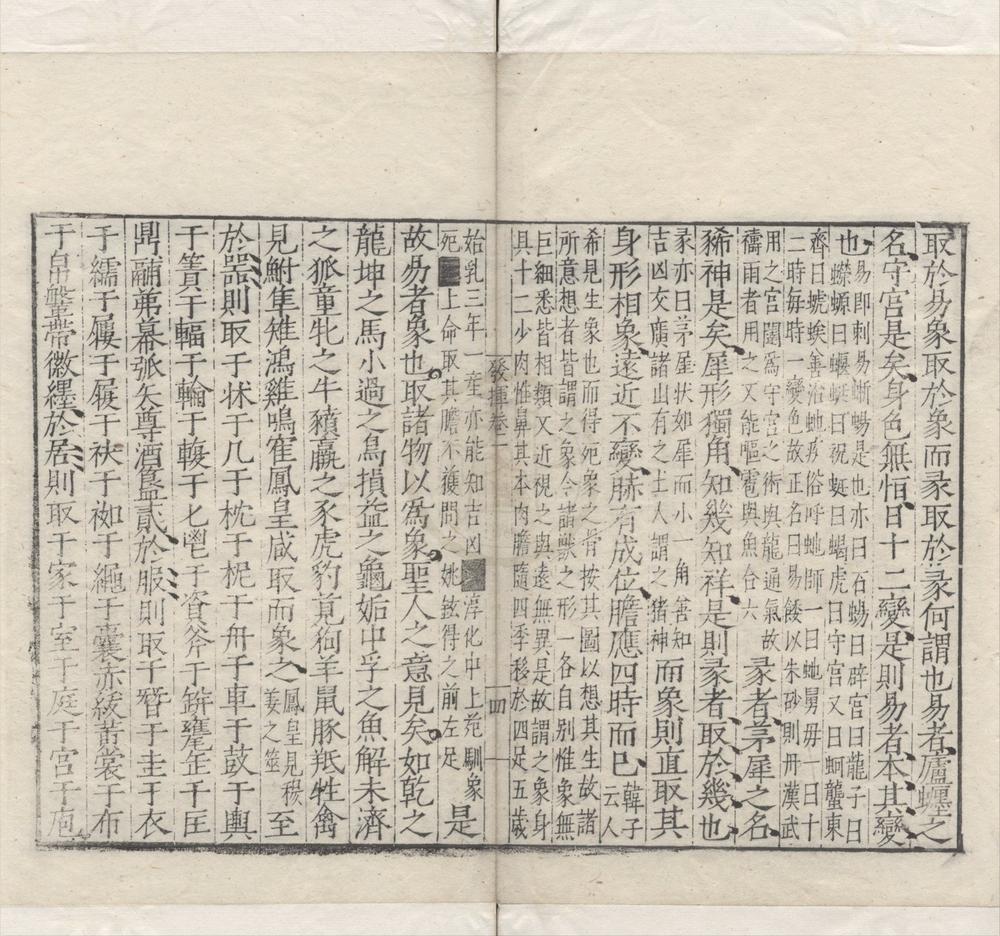 取於易象取於象而彖取於彖何謂也易者廬蝘之
名守宮是矣身色無恒日十二變是則易者本其變
也易即刺易蜥蜴是也亦曰石蜴曰辟宮曰龍子曰
蠑螈曰蝘蜓曰祝蜓曰蝎虎曰守宮又曰蚵蠪東
齊曰蝘蜓善治虵疥俗呼虵師一曰虵舅毋一日十
二時每時一變色故正名曰易餧以朱砂則丹漢武
用之宮闈爲守宮之術與龍通氣故
禱雨者用之又能嘔雹與魚合六
彖者茅犀之名
豨神是矣犀形獨角知幾知祥是則彖者取於幾也
彖亦曰茅犀狀如犀而小一角善知
吉凶交廣諸山有之土人謂之猪神
而象則直取其
身形相象遠近不變肺有成位膽應四時而已
韓子云人
希見生象也而得死象之骨按其圖以想其生故諸
所意想者皆謂之象今諸獸之形一各自別惟象無
巨細悉皆相類又近視之與遠無異是故謂之象身
具十二少肉惟鼻其本肉膽隨四季移於四足五歲
發揮卷二
四
始乳三年一產亦能知吉凶淳化中上苑馴象
死上命取其膽不獲問之姚鉉得之前左足
是
故易者象也取諸物以爲象聖人之意見矣如乾之
龍坤之馬小過之鳥損益之龜姤中孚之魚解未濟
之狐童牝之牛豶羸之豕虎豹莧狗羊鼠豚羝牲禽
見鮒隼雉鴻雞鳴寉鳳皇咸取而象之
鳳皇見穆
姜之筮
至
於器則取于牀于几于枕于柅于舟于車于鼓于輿
于簀于輻于輪于輹于匕鬯于資斧于鈃甕缶于匡
鼎黼茀幕弧矢尊酒簋貳於服則取于簪于圭于衣
于繻于屨于屐于袂于袽于繩于囊亦紱黄裳于布
于帛鞶帶徽纆於居則取于家于室于庭于宮于庖